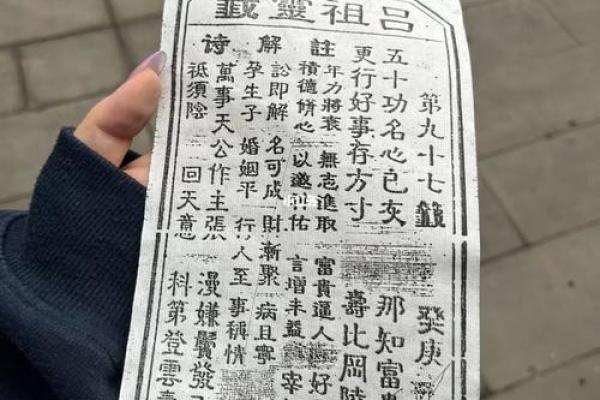 呂祖靈籤
第九十七籤 癸庚
五十功名心已灰 那知富
更行好事存方寸 壽比岡陵
註
年力將衰 無志進取 富貴逼人 好
積德脩心 以邀神佑 言增未益 宰
解
訟即解 名可成 財漸聚 病且寧
孕生子 婚姻平 行人至 事稱情
诗
萬事天公作主張 漫嫌鬢發
祗須陰 回天意 科第登雲